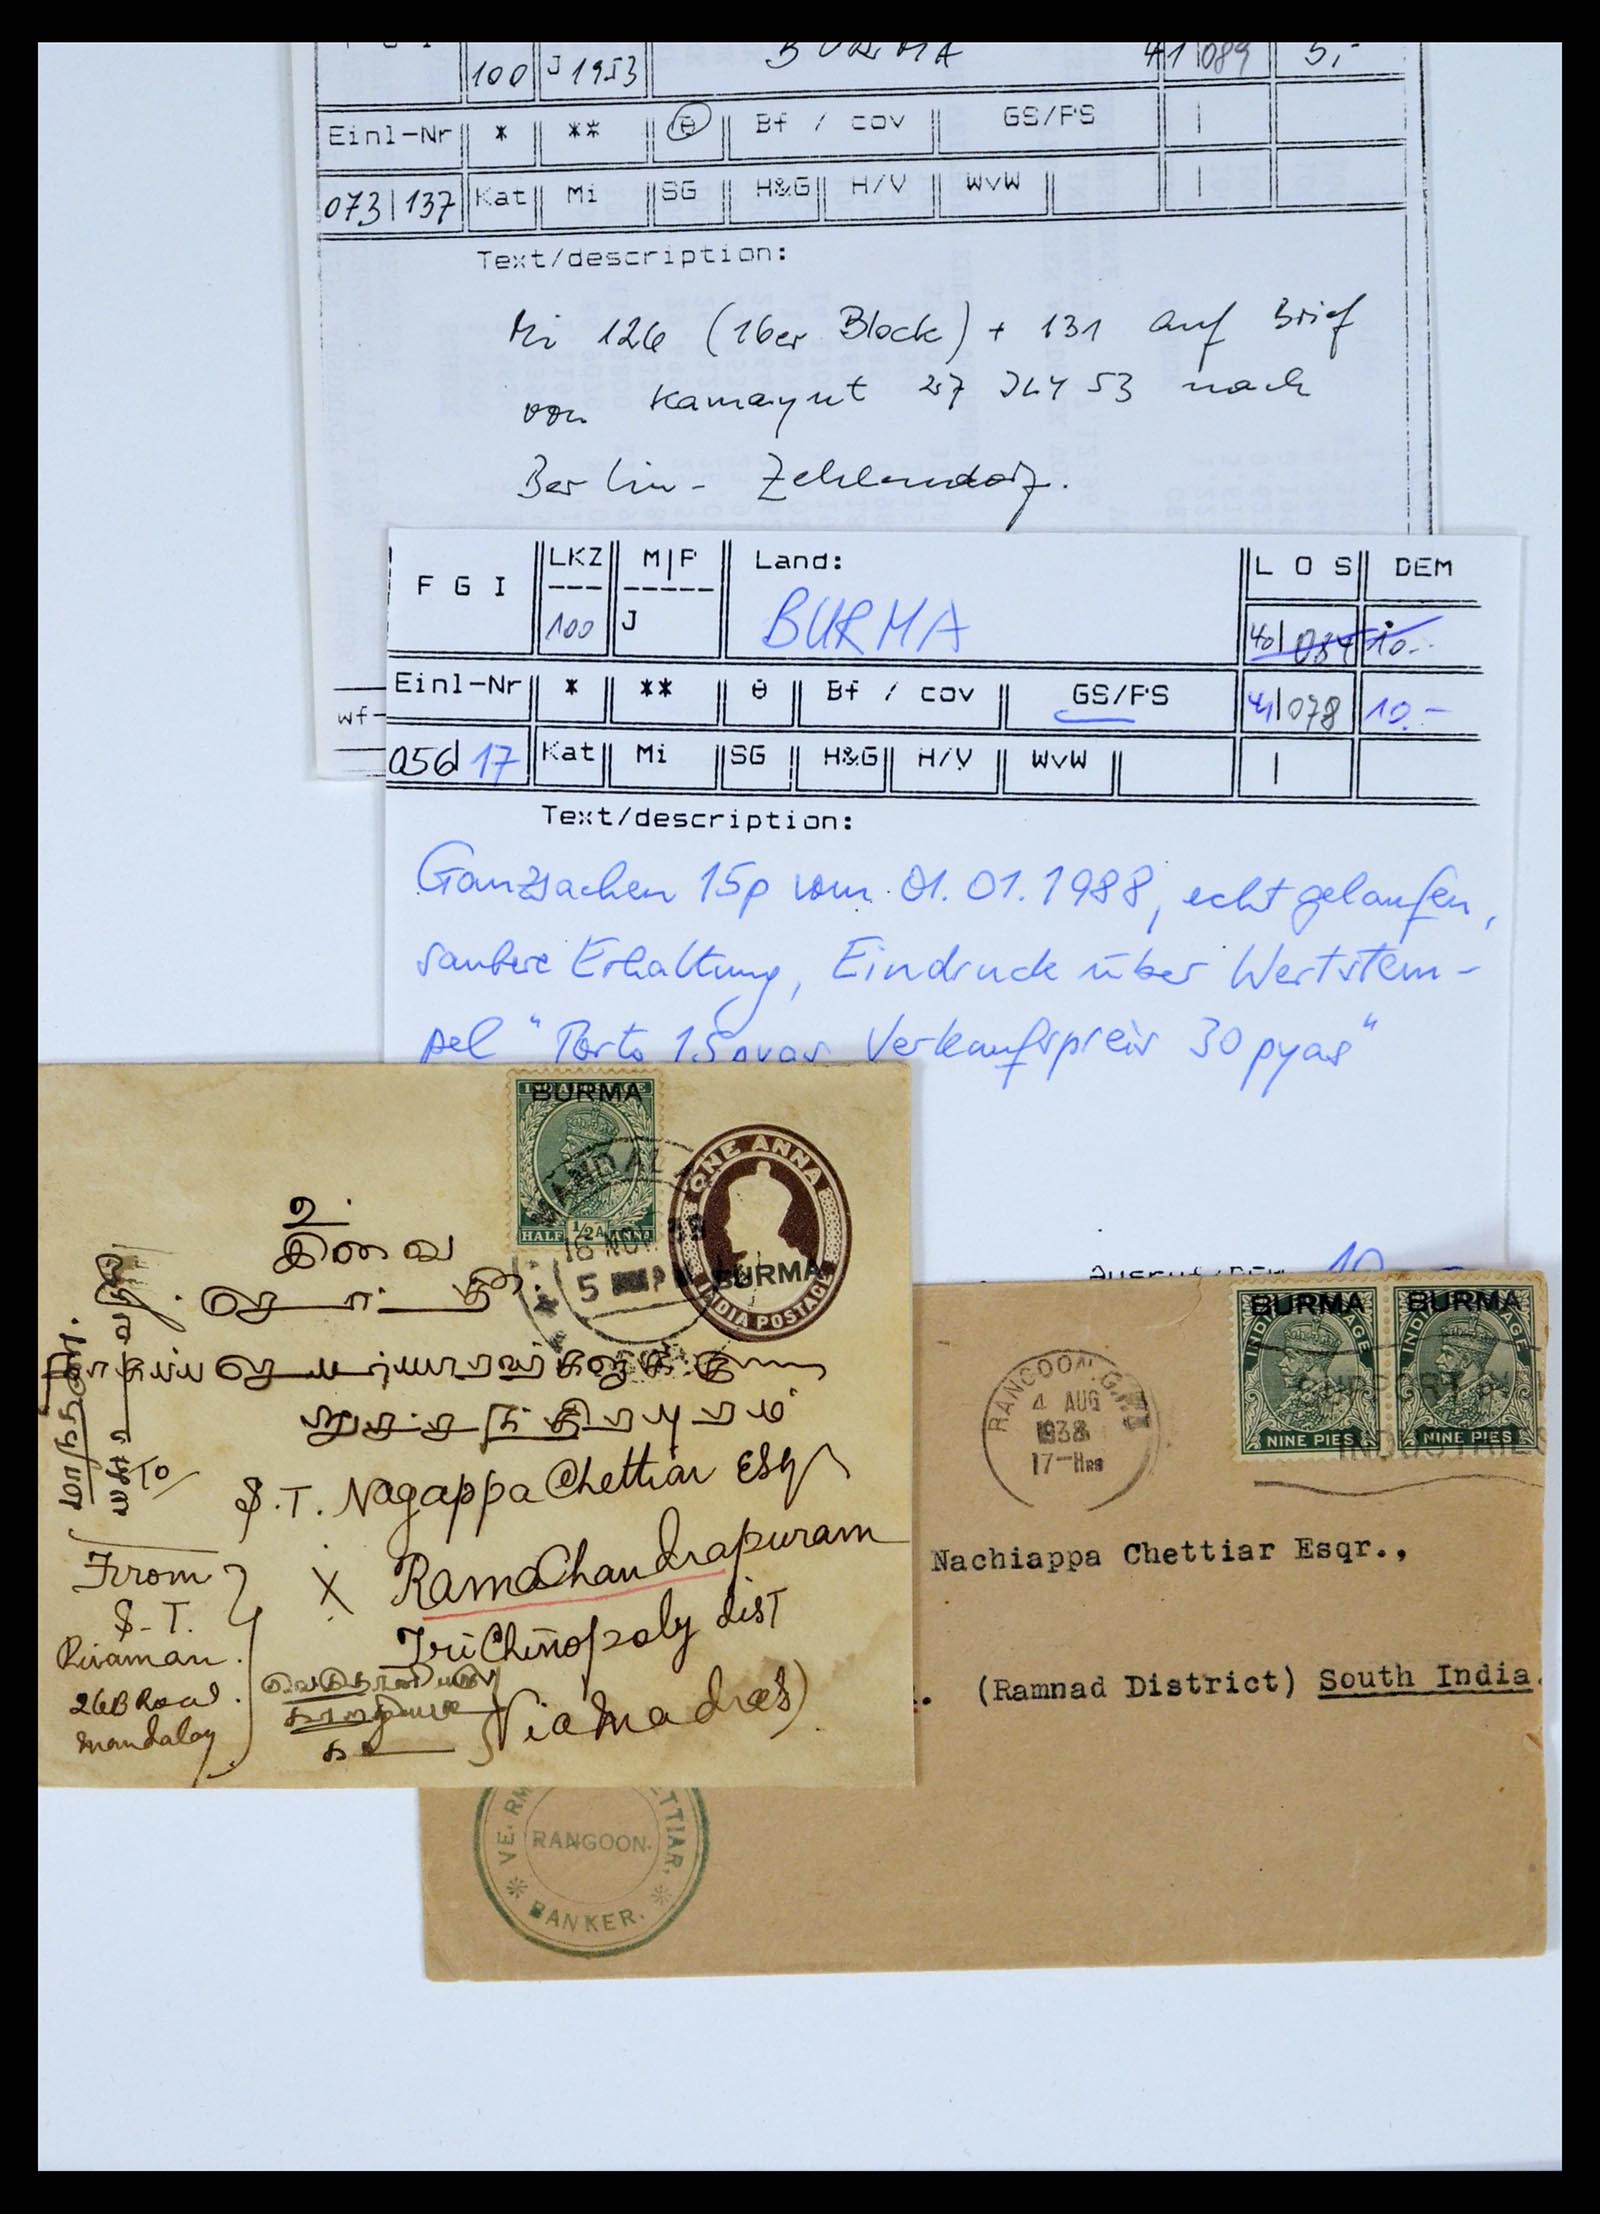 F G I
100 J 1953 BURMA 41 089 5,-
Einl-Nr * ** Bf / cov GS/PS
073 137 Kat Mi SG H&G H/V WvW
Text/description:
Mi 126 (16er Block) + 131 auf Brief
von Kamayut 27 JLY 53 nach
Berlin- Zehlendorf.
LKZ M|P Land: L O S DEM
F G I
100 J BURMA 40 084 10.-
Einl-Nr * ** Bf / cov GS/PS 41 078 10.-
wf-
056 17 Kat Mi SG H&G H/V WvW
Text/description:
Ganzsachen 15p vom 01.01.1988, echt gelaufen,
saubere Erhaltung, Eindruck über Wertstem-
pel "Porto 15 pyas Verkaufspreis 30 pyas"
10
BURMA
HALF 1/2 A ANNA
ONE ANNA
INDIA POSTAGE
BURMA
MANDALAY
16 NOV 38
5
உ
சிவை
To
S.T. Nagappa Chettiar Esqr
X RamaChandrapuram
TriChinopoly dist
(Via Madras)
From
S.T.
26B Road
Mandalay
BURMA BURMA
INDIA POSTAGE INDIA POSTAGE
NINE PIES NINE PIES
RANGOON G.P.O.
4 AUG
1938
17-HRS
SUPPORT
INDUSTRIES
Nachiappa Chettiar Esqr.,
(Ramnad District) South India.
VE. RM
ETTIAR.
RANGOON.
BANKER.